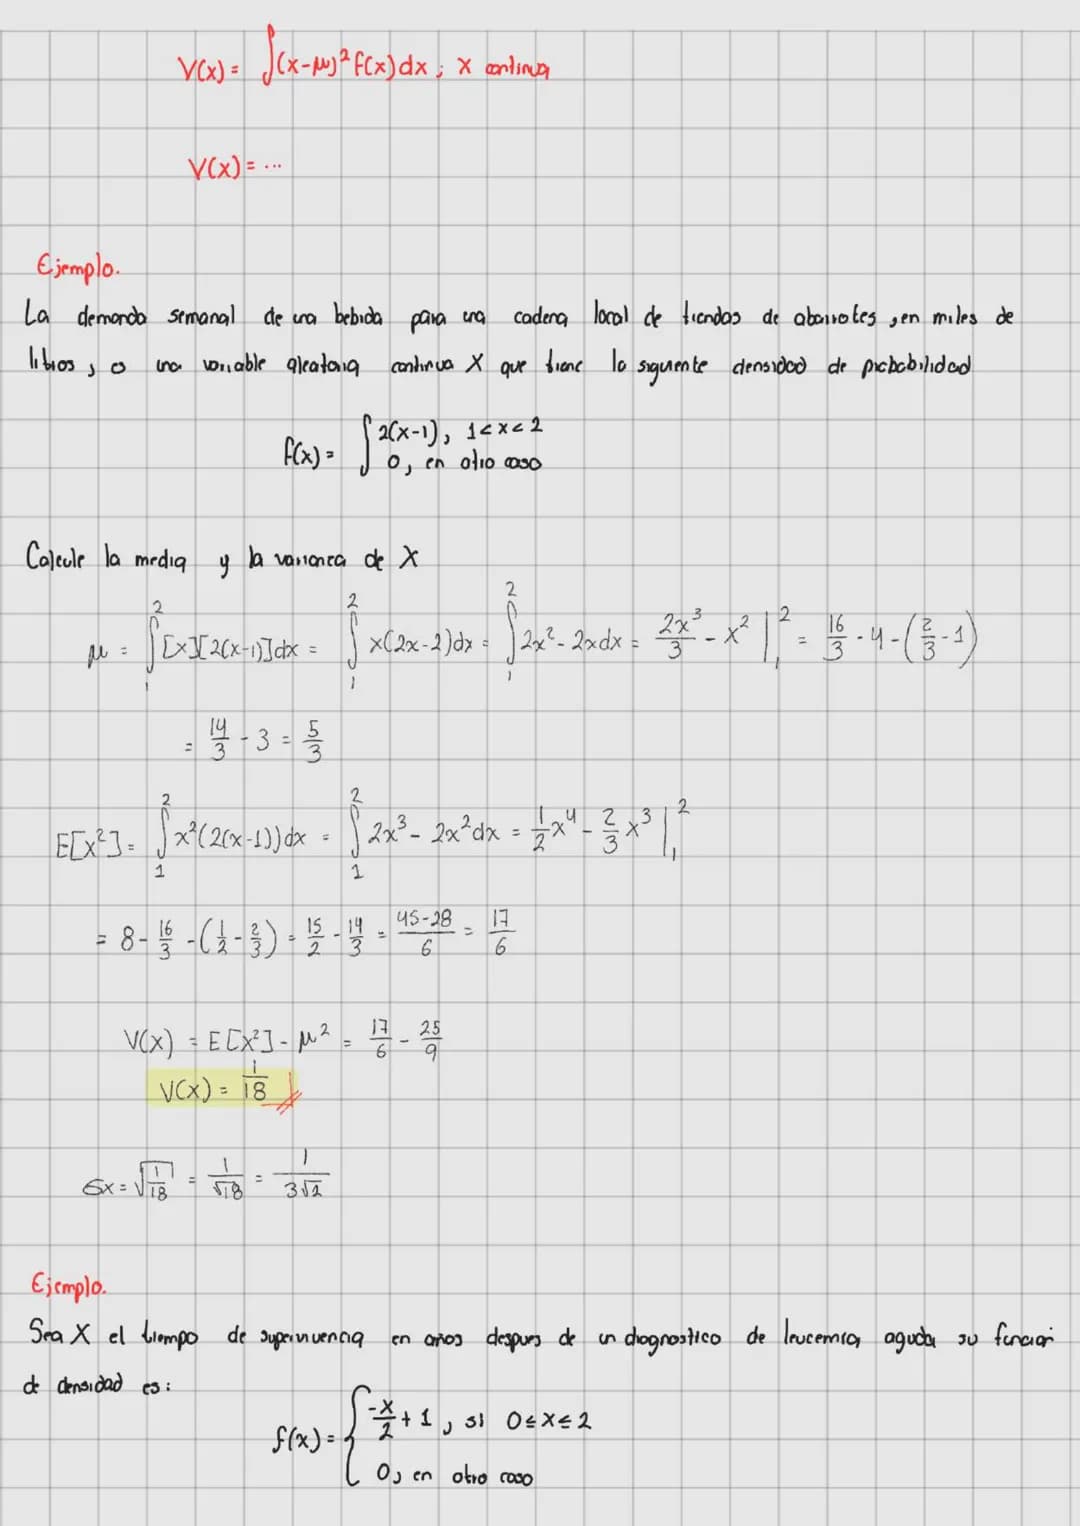 V(x) = ∫(x-μ)² f(x)dx ; x continua
V(x) = ...
Ejemplo.
La demanda semanal de una bebida para una cadena local de tiendas de abarrotes , en miles de
litros , es una variable aleatoria continua X que tiene la siguiente densidad de probabilidad
f(x) = { 2(x-1), 1<x<2
0, en otro caso
Calcule la media y la varianza de X
μ = ∫₁² [x][2(x-1)]dx = ∫₁² x(2x-2)dx = ∫₁² 2x² - 2x dx = 2x³/3 - x² |₁² = 16/3 - 4 - (2/3 - 1)
= 14/3 - 3 = 5/3
E[x²] = ∫₁² x²(2(x-1))dx = ∫₁² 2x³ - 2x² dx = 1/2 x⁴ - 2/3 x³ |₁²
= 8 - 16/3 - (1/2 - 2/3) = 15/2 - 14/3 = 45-28/6 = 17/6
V(x) = E[x²] - μ² = 17/6 - 25/9
V(x) = 1/18
σx = √(1/18) = 1/√18 = 1/3√2
Ejemplo.
Sea X el tiempo de supervivencia en años despues de un diagnostico de leucemia aguda su funcion
de densidad es :
f(x) = { -x/2 + 1 , si 0 ≤ x ≤ 2
0, en otro caso